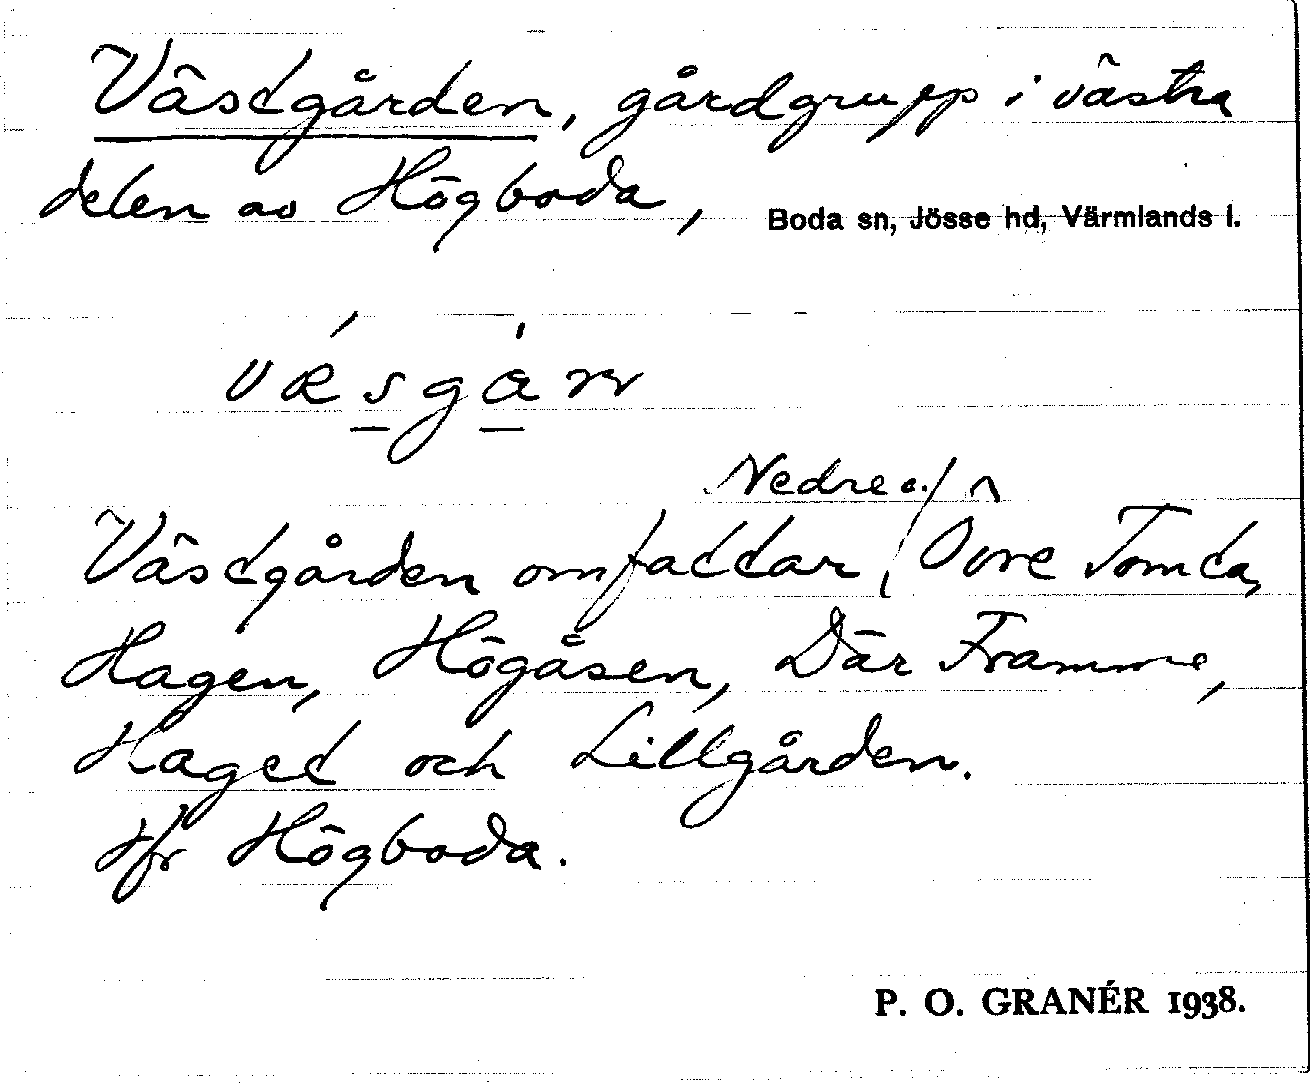 Västgården, gårdgrupp i västra
delen av Högboda, Boda sn, Jösse hd, Värmlands l.
Nedre o.
Västgården omfattar Övre Tomta,
Hagen, Högåsen, Där Framme,
Haget och Lillgården.
Jfr Högboda.
P. O. GRANÉR 1938.